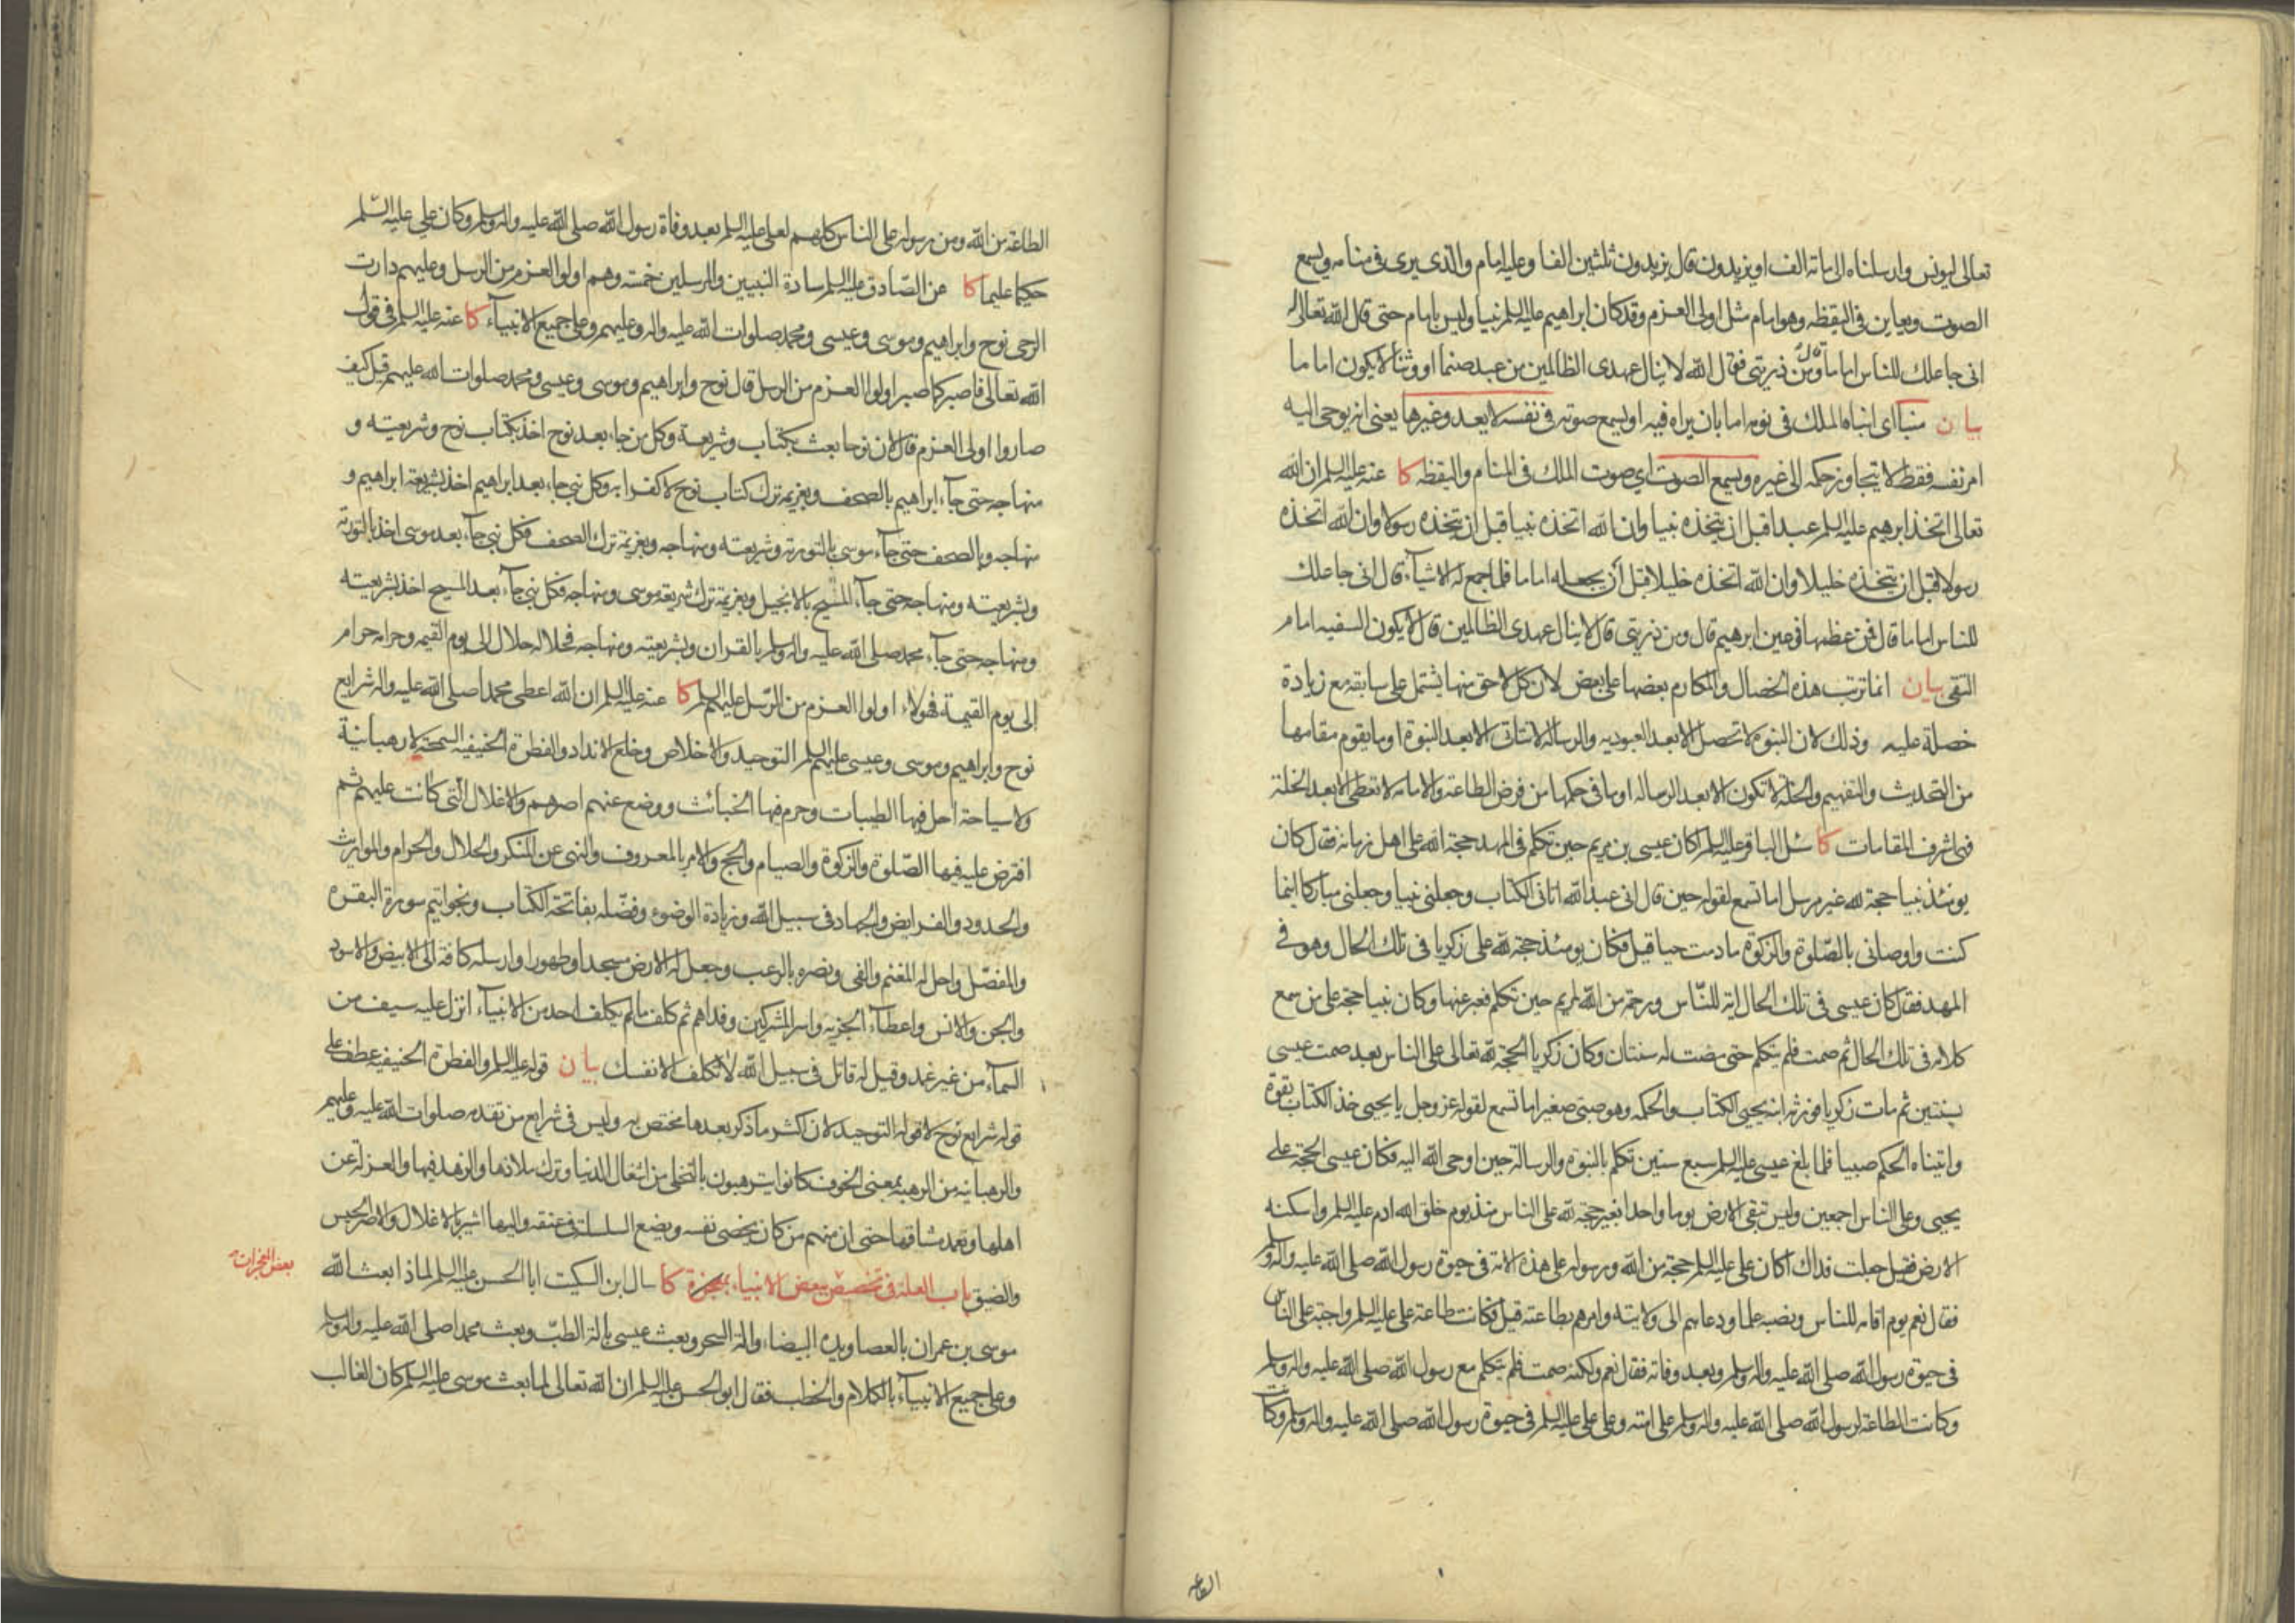 تعالى ليونس وارسلناه الى مائة الف او يزيدون قال يزيدون ثلثين الفا وعليه امام والذي يرى في منامه ويسمع
الصوت ويعاين في اليقظه وهو امام مثل اولى العزم وقد كان ابراهيم عليه السلم نبيا وليس بامام حتى قال الله تعالى له
انى جاعلك للناس اماما قال ومن ذريتى فقال الله لا ينال عهدى الظالمين من عبد صنما او وثنا لا يكون اماما
بيان منبأ اى انباه الملك في نومه اما بان يراه فيه او يسمع صوته في نفسه لا يعد وغيرها يعنى انه يوحى اليه
امر نفسه فقط لا يتجاوز حكمه الى غيره ويسمع الصوت اي صوت الملك في المنام واليقظه كا عنه عليه السلم ان الله
تعالى اتخذ ابرهيم عليه السلم عبدا قبل ان يتخذه نبيا وان الله اتخذه نبيا قبل ان يتخذه رسولا وان الله اتخذه
رسولا قبل ان يتخذه خليلا وان الله اتخذه خليلا قبل أن يجعله اماما فلما جمع له الاشيآء قال انى جاعلك
للناس اماما قال فمن عظمها في عين ابرهيم قال ومن ذريتى قال لا ينال عهدى الظالمين قال لا يكون السفيه امام
التقى بيان انما ترتب هذه الخصال والمكارم بعضها على بعض لان كل لاحق منها يشتمل على سابقه مع زيادة
خصلة عليه وذلك لان النبوة لا تحصل الا بعد العبوديه والرسالة لا تتأتى الا بعد النبوة او ما يقوم مقامها
من التحديث والتفهيم والخلة لا تكون الا بعد الرساله او ما في حكمها من فرض الطاعة والامامه لا تعطى الا بعد الخلة
فهى اشرف المقامات كا سئل الباقر عليه السلم اكان عيسى بن مريم حين تكلم في المهد حجة الله على اهل زمانه فقال كان
يومئذ نبيا حجة لله غير مرسل اما تسمع لقوله حين قال انى عبد الله اتانى الكتاب وجعلنى نبيا وجعلنى مباركا اينما
كنت واوصانى بالصّلوة والزكوة ما دمت حيا قيل فكان يومئذ حجة لله على زكريا في تلك الحال وهو في
المهد فقال كان عيسى في تلك الحال اية للنّاس ورحمة من الله لمريم حين تكلم فعبر عنها وكان نبيا حجة على من سمع
كلامه في تلك الحال ثم صمت فلم يتكلم حتى مضت له سنتان وكان زكريا الحجة لله تعالى على الناس بعد صمت عيسى
بسنتين ثم مات زكريا فورثه ابنه يحيى الكتاب والحكمه وهو صبى صغير اما تسمع لقوله عز وجل يا يحيى خذ الكتاب بقوة
واتيناه الحكم صبيا فلما بلغ عيسى عليه السلم سبع سنين تكلم بالنبوة والرسالة حين اوحى الله اليه فكان عيسى الحجة على
يحيى وعلى الناس اجمعين وليس تبقى الارض يوما واحدا بغير حجة لله على الناس منذ يوم خلق الله ادم عليه السلم واسكنه
الارض فقيل جعلت فداك اكان على عليه السلم حجة من الله ورسوله على هذه الامة في حيوة رسول الله صلى الله عليه واله وسلم
فقال نعم يوم اقامه للناس ونصبه علما ودعاهم الى ولايته وامرهم بطاعته قيل فكانت طاعة على عليه السلم واجبة على الناس
في حيوة رسول الله صلى الله عليه واله وسلم وبعد وفاته فقال نعم ولكنه صمت فلم يتكلم مع رسول الله صلى الله عليه واله وسلم
وكانت الطاعة لرسول الله صلى الله عليه واله وسلم على امته وعلى على عليه السلم في حيوة رسول الله صلى الله عليه واله وسلم وكانت
الطاعه
الطاعة من الله ومن رسوله على الناس كلهم لعلى عليه السلم بعد وفاة رسول الله صلى الله عليه واله وسلم وكان على عليه السّلم
حكيما عليما كا عن الصّادق عليه السلم سادة النبيين والمرسلين خمسة وهم اولوا العزم من الرسل وعليهم دارت
الرحى نوح وابراهيم وموسى وعيسى ومحمد صلوات الله عليه واله وعليهم وعلى جميع الانبيآء كا عنه عليه السلم في قول
الله تعالى فاصبر كما صبر اولوا العزم من الرسل قال نوح وابراهيم وموسى وعيسى ومحمد صلوات الله عليهم قيل كيف
صاروا اولى العزم قال لان نوحا بعث بكتاب وشريعة وكل من جاء بعد نوح اخذ بكتاب نوح وشريعته و
منهاجه حتى جآء ابراهيم بالصحف وبعزيمة ترك كتاب نوح لا كفرا به وكل نبى جاء بعد ابراهيم اخذ بشريعة ابراهيم و
منهاجه وبالصحف حتى جآء موسى بالتورية وشريعته ومنهاجه وبعزيمة ترك الصحف فكل نبى جآء بعد موسى اخذ بالتورية
وبشريعته ومنهاجه حتى جآء المسيح بالانجيل وبعزيمة ترك شريعة موسى ومنهاجه فكل نبى جآء بعد المسيح اخذ بشريعته
ومنهاجه حتى جآء محمد صلى الله عليه واله وسلم بالقران وبشريعته ومنهاجه فحلاله حلال الى يوم القيمه وحرامه حرام
إلى يوم القيمة فهولاء اولوا العزم من الرّسل عليهم السلم كا عنه عليه السلم ان الله اعطى محمدا صلى الله عليه واله شرايع
نوح وابراهيم وموسى وعيسى عليهم السلم التوحيد والاخلاص وخلع الانداد والفطرة الحنيفيه السمحة لا رهبانية
ولا سياحة احل فيها الطيبات وحرم فيها الخبائث ووضع عنهم اصرهم والاغلال التى كانت عليهم ثم
افترض عليه فيها الصّلوة والزكوة والصيام والحج والامر بالمعروف والنهى عن المنكر والحلال والحرام والمواريث
والحدود والفرايض والجهاد في سبيل الله وزيادة الوضوء وفضّله بفاتحة الكتاب وبخواتيم سورة البقرة
والمفصّل واحل له المغنم والفى ونصره بالرعب وجعل له الارض مسجدا وطهورا وارسله كافة الى الابيض والاسود
والجن والانس واعطآه الجزيه واسر المشركين وفداهم ثم كلف ما لم يكلف احد من الانبيآء انزل عليه سيف من
السمآء من غير غمد وقيل له قاتل في سبيل الله لا تكلف الا نفسك بيان قوله عليه السلم والفطرة الحنيفيه عطف على
قوله شرايع نوح لا قوله التوحيد لان اكثر ما ذكر بعدها مختص به وليس في شرايع من تقدمه صلوات الله عليه وعليهم
والرهبانيه من الرهبة بمعنى الخوف كانوا يترهبون بالتخلى من اشغال الدنيا وترك ملاذها والزهد فيها والعزلة عن
اهلها وتعمد مشاقها حتى ان منهم من كان يخصى نفسه ويضع السلسلة في عنقه واليها اشير بالاغلال والاصر الحبس
والضيق باب العلة في تخصيص بعض الانبياء بمعجزة كا سال ابن السكيت ابا الحسن عليه السلم لما ذا بعث الله
بعض المعجزات
موسى بن عمران بالعصا ويده البيضاء والة السحر وبعث عيسى بالة الطبّ وبعث محمدا صلى الله عليه واله وسلم
وعلى جميع الانبيآء بالكلام والخطب فقال ابو الحسن عليه السلم ان الله تعالى لما بعث موسى عليه السلم كان الغالب